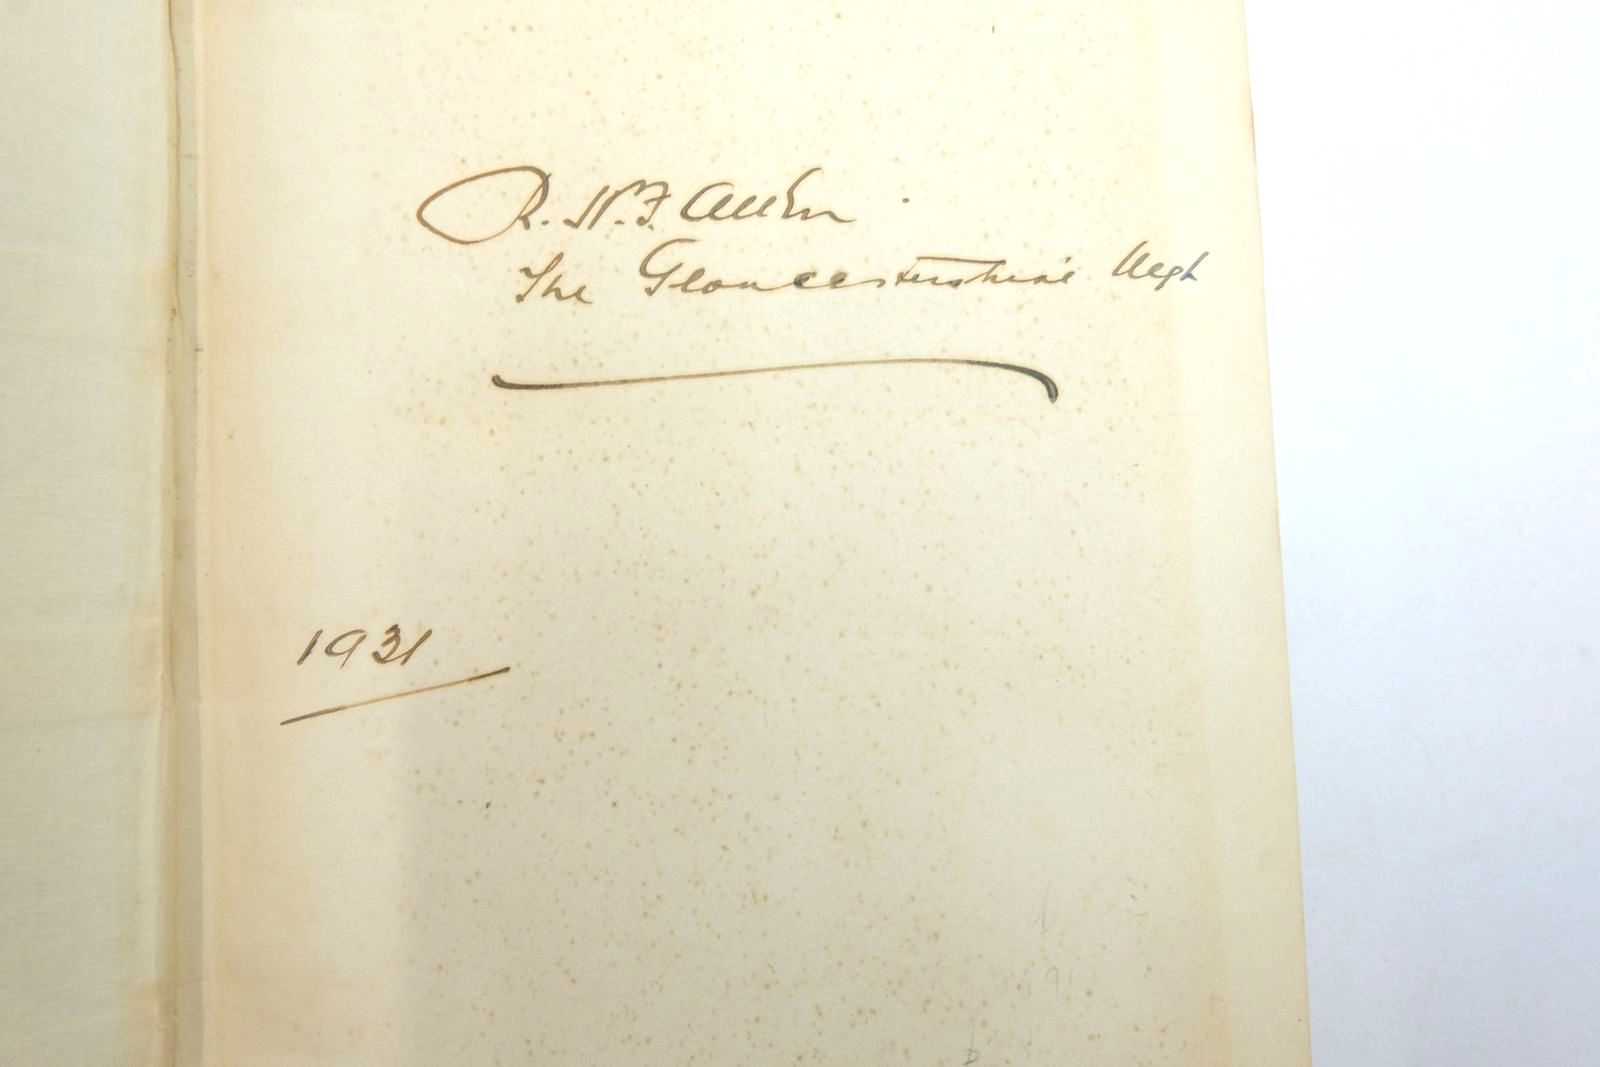 R. W. F. Allen.
The Gloucestershire Regt
1931